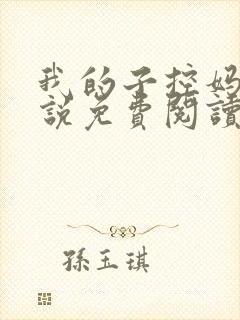 我的子控妈
說免費閱讀
孫玉琪